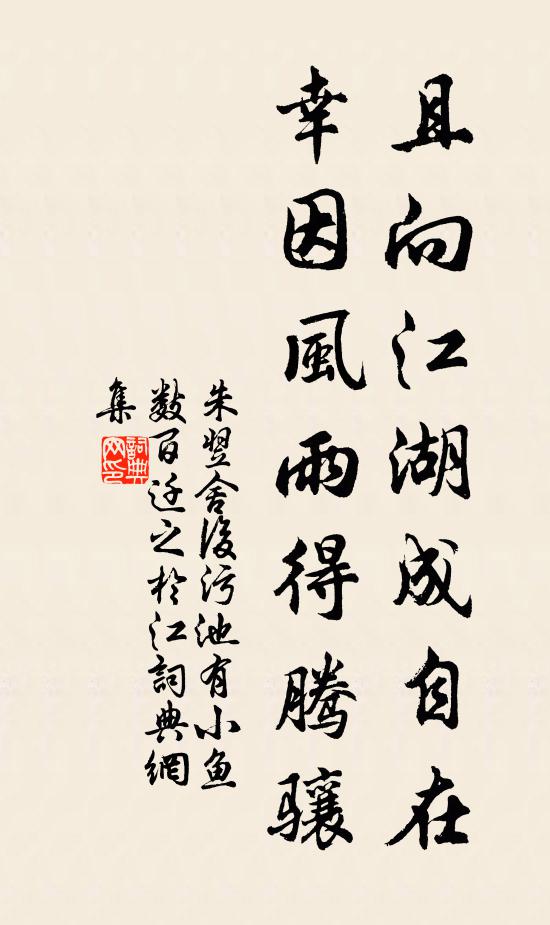 且向江湖成自在
幸因風雨得腾骧
朱翌舍後污池有小魚
数百迁之於江詞典網
集
詞典網印